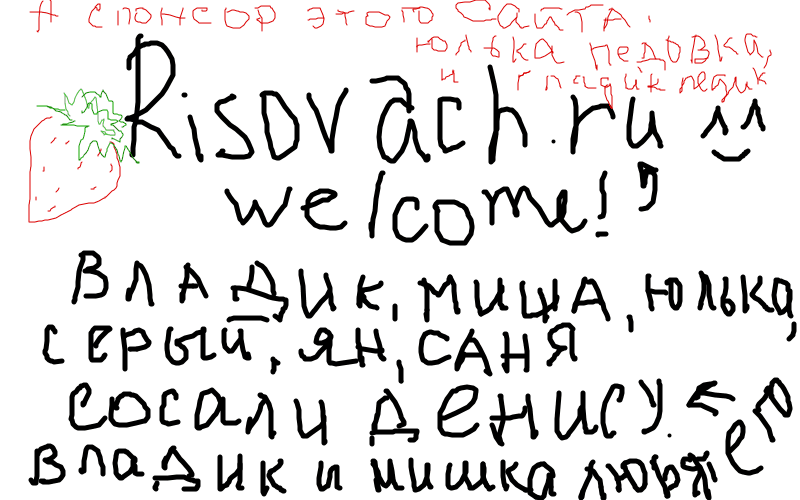 А спонсор этого Сайта.
юлька педовка,
и гладик педик
Risovach.ru
welcome!
Владик, миша, юлька,
серый, ян, саня
сосали денису. ← его
Владик и мишка любят